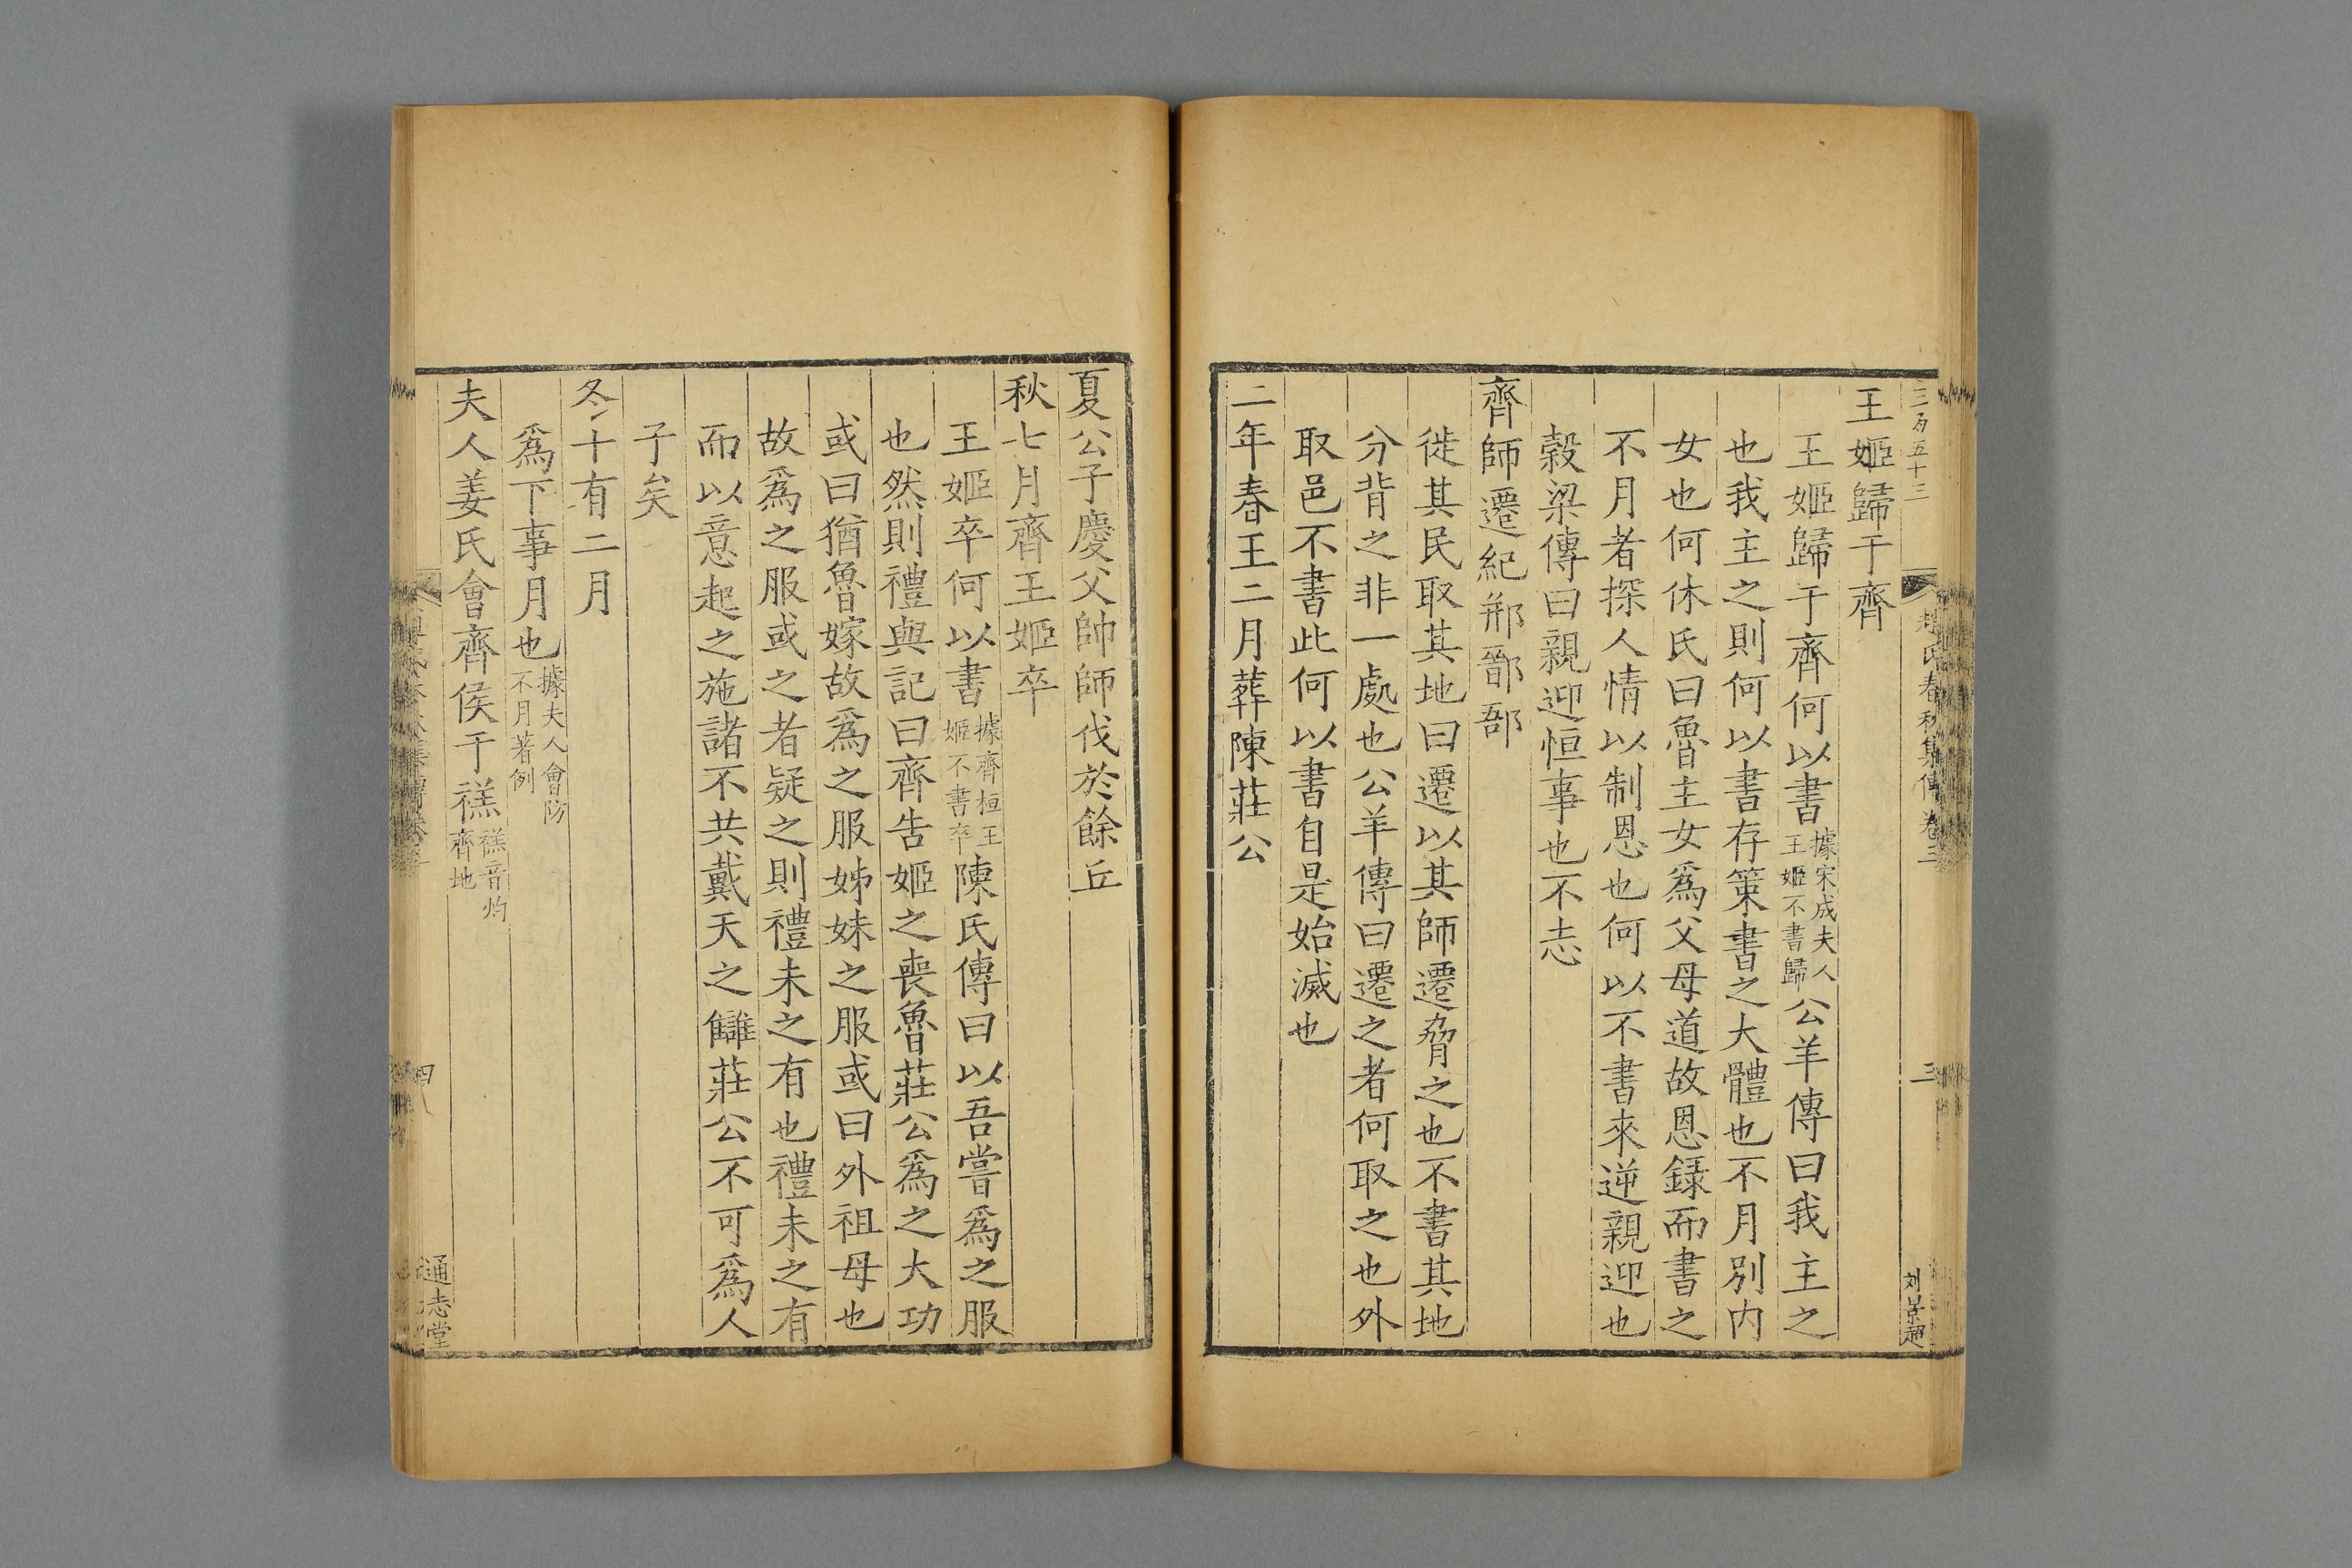 三百五十三
趙氏春秋集傳卷三
三
刘景超
王姬歸于齊
王姬歸于齊何以書據宋成夫人王姬不書歸公羊傳曰我主之
也我主之則何以書存策書之大體也不月别内
女也何休氏曰魯主女爲父母道故恩録而書之
不月者探人情以制恩也何以不書來逆親迎也
穀梁傳曰親迎恒事也不志
齊師遷紀郱鄑郚
徙其民取其地曰遷以其師遷脅之也不書其地
分背之非一處也公羊傳曰遷之者何取之也外
取邑不書此何以書自是始滅也
二年春王二月葬陳莊公
夏公子慶父帥師伐於餘丘
秋七月齊王姬卒
王姬卒何以書據齊桓王姬不書卒陳氏傳曰以吾嘗爲之服
也然則禮與記曰齊告姬之喪魯莊公爲之大功
或曰猶魯嫁故爲之服姊妹之服或曰外祖母也
故爲之服或之者疑之則禮未之有也禮未之有
而以意起之施諸不共戴天之讎莊公不可爲人
子矣
冬十有二月
爲下事月也據夫人會防不月著例
夫人姜氏會齊侯于禚禚音灼齊地
四
通志堂